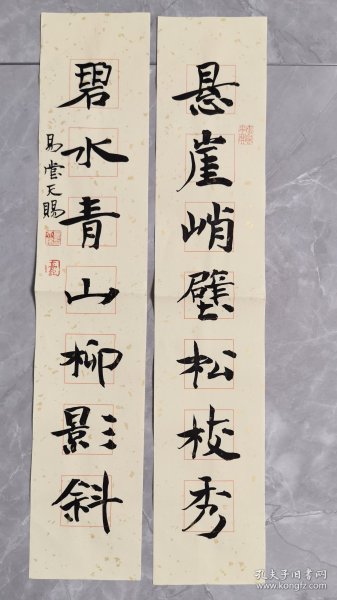 悬崖峭壁松枝秀
碧水青山柳影斜
易堂天赐
孔夫子旧书网
www.kongfz.com